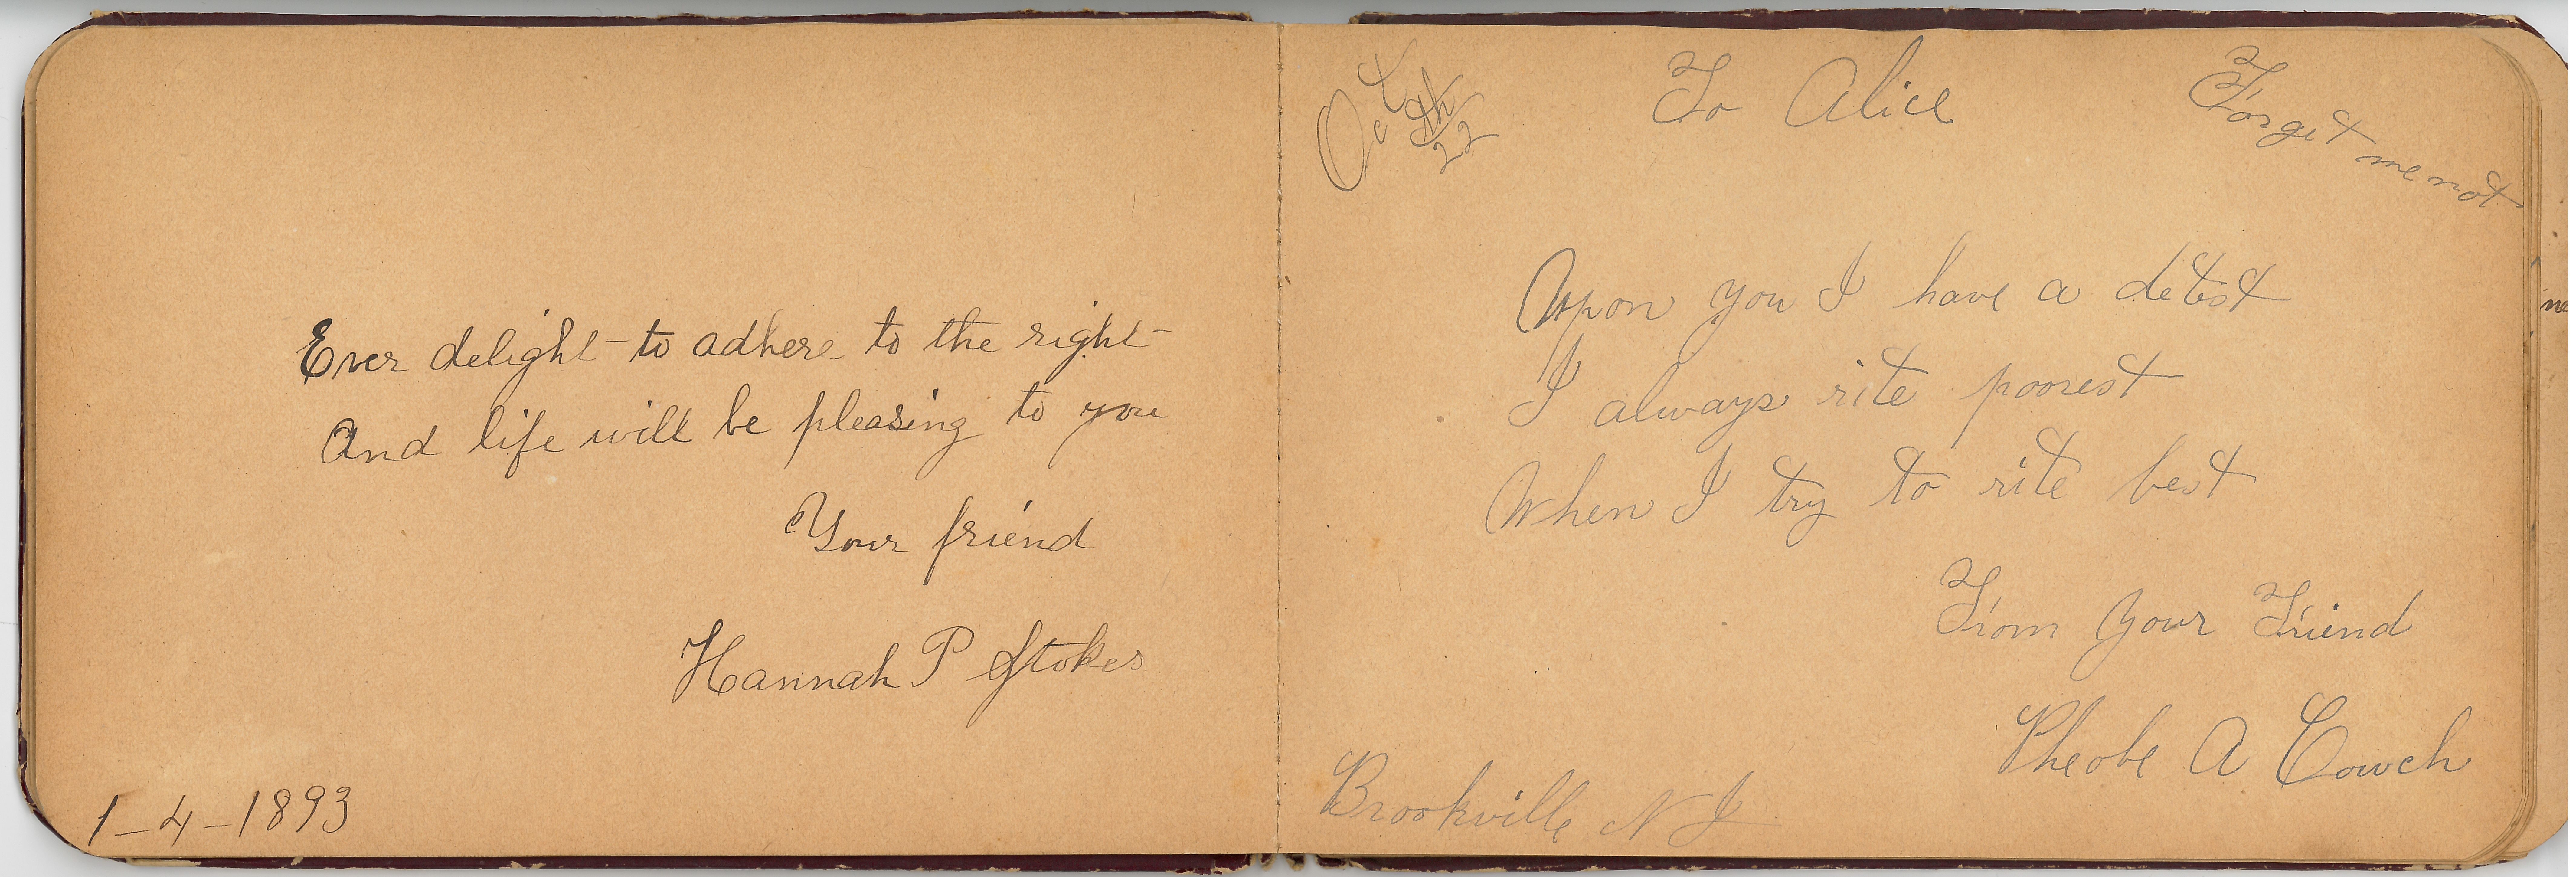 Ever delight to adhere to the right
And life will be pleasing to you
Your friend
Hannah P Stokes
1-4-1893
To Alice
Forget me not
Oct
9th
22
Upon you I have a detest
I always rite poorest
When I try to rite best
From your Friend
Pheobe A Cowch
Brookville N J